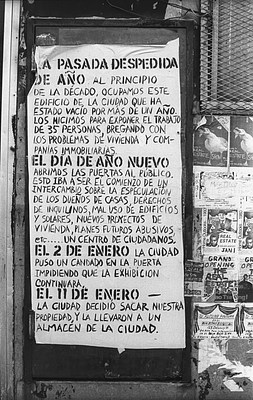 LA PASADA DESPEDIDA
DE AÑO AL PRINCIPIO
DE LA DÉCADO, OCUPAMOS ESTE
EDIFICIO DE LA CIUDAD QUE HA
ESTADO VACIO POR MÁS DE UN AÑO.
LOS HICIMOS PARA EXPONER EL TRABAJO
DE 35 PERSONAS, BREGANDO CON
LOS PROBLEMAS DE VIVIENDA Y COM-
PANÍAS IMMOBILIARIAS.
EL DIA DE AÑO NUEVO
ABRIMOS LAS PUERTAS AL PÚBLICO.
ESTO IBA A SER EL COMIENZO DE UN
INTERCAMBIO SOBRE LA ESPECULACIÓN
DE LOS DUEÑOS DE CASAS, DERECHOS
DE INQUILINOS, MAL USO DE EDIFICIOS
Y SOLARES, NUEVOS PROYECTOS DE
VIVIENDA, PLANES FUTUROS ABUSIVOS
etc..... UN CENTRO DE CIUDADANOS.
EL 2 DE ENERO LA CIUDAD
PUSO UN CANDADO EN LA PUERTA
IMPIDIENDO QUE LA EXHIBICION
CONTINUARA.
EL 11 DE ENERO —
LA CIUDAD DECIDIÓ SACAR NUESTRA
PROPIEDAD, Y LA LLEVARON A UN
ALMACÉN DE LA CIUDAD.
REAL
ESTATE
GRAND
OPENING